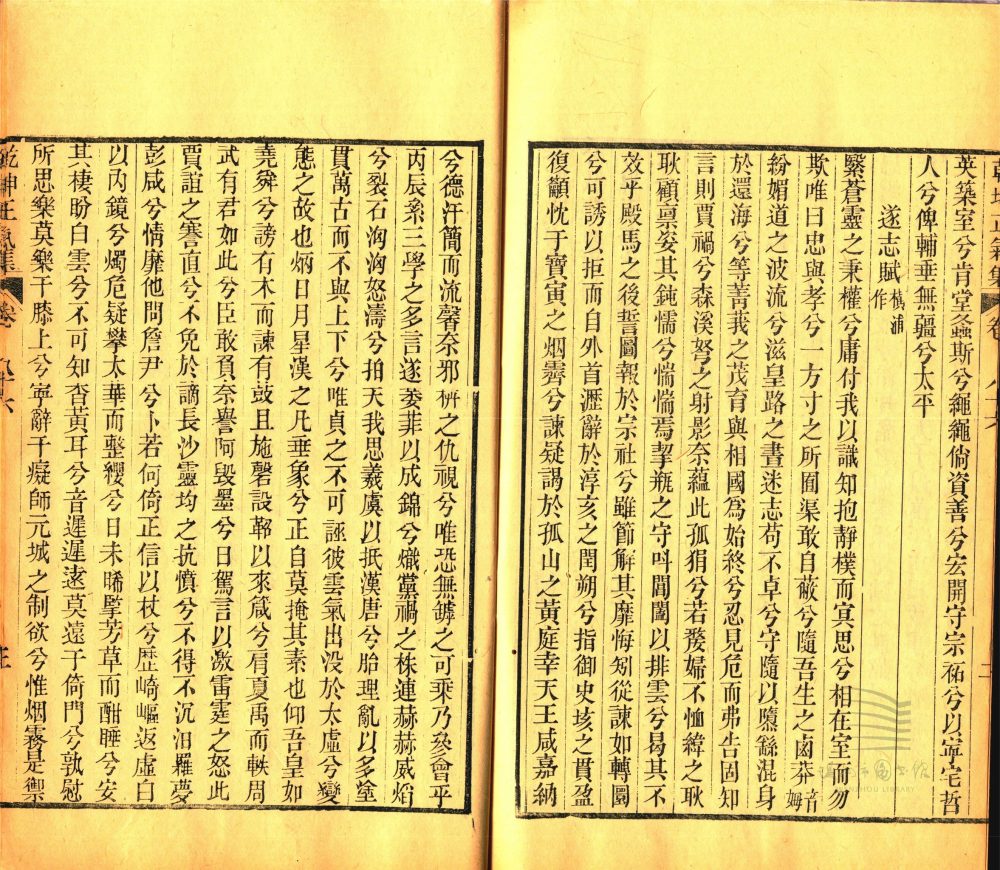 英築室兮肯堂螽斯兮繩繩倘資善兮宏開守宗祏兮以寧宅哲
人兮俾輔垂無疆兮太平
遂志賦
作
繄蒼靈之秉權兮庸付我以識知抱靜樸而寘思兮相在室而勿
欺唯曰忠與孝兮一方寸之所囿渠敢自蔽兮隨吾生之鹵莽音姆
紛媚道之波流兮滋皇路之晝迷志苟不卓兮守隨以隳繇混身
於還海兮等菁莪之茂育與相國為始終兮忍見危而弗告固知
言則賈禍兮森溪弩之射影奈蘊此孤狷兮若嫠婦不恤緯之耿
耿顧禀姿其鈍懦兮惴惴焉挈瓶之守呌閶闔以排雲兮曷其不
效乎殿馬之後誓圖報於宗社兮雖節解其靡悔矧從諫如轉圜
兮可誘以拒而自外首瀝辭於淳亥之閏朔兮指御史垓之貫盈
復籲忱于寶寅之烟霽兮諫疑謁於孤山之黃庭幸天王咸嘉納
兮德汗簡而流馨奈邪枿之仇視兮唯恐無罅之可乘乃兮會乎
丙辰紊三學之多言遂萋菲以成錦兮熾黨禍之株連赫赫威焰
兮裂石洶洶怒濤兮拍天我思羲虞以抵漢唐兮胎理亂以多塗
貫萬古而不與上下兮唯貞之不可誣彼雲氣出没於太虛兮變
態之故也炳日月星漢之凡垂象兮正自莫掩其素也仰吾皇如
堯舜兮謗有木而諫有鼓且施磬設鞀以來箴兮肩夏禹而軼周
武有君如此兮臣敢負奈譽阿毀墨兮日駕言以激雷霆之怒此
賈誼之謇直兮不免於謫長沙靈均之抗憤兮不得不沉汨羅夢
彭咸兮情靡他問詹尹兮卜若何倚正信以杖兮歷崎嶇返虛白
以內鏡兮燭危疑攀太華而整纓兮日未晞擥芳草而酣睡兮安
其棲盼白雲兮不可知杳黃耳兮音遲遲逺莫遠于倚門兮孰慰
所思樂莫樂于膝上兮寧辭于癡師元城之制欲兮惟烟霧是禦
乾坤正氣集
卷